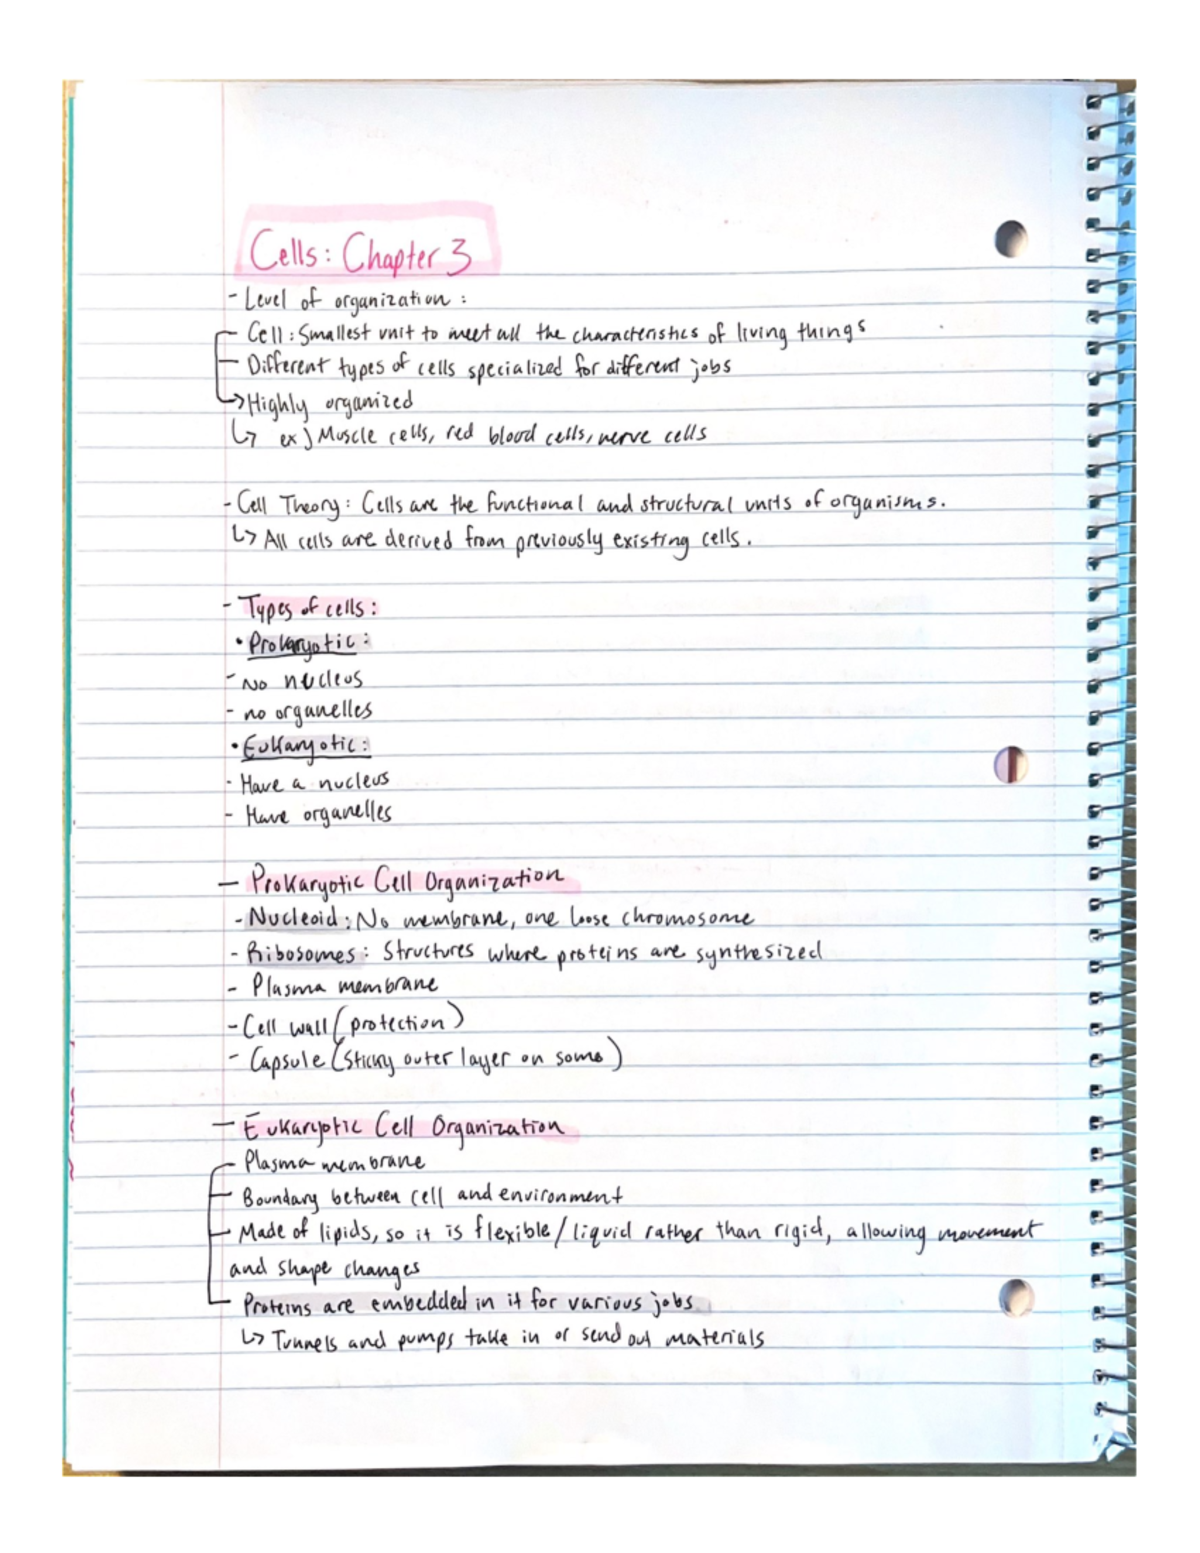 Cells: Chapter 3
- Level of organization:
- Cell: Smallest unit to meet all the characteristics of living things
- Different types of cells specialized for different jobs
→ Highly organized
↳ ex) Muscle cells, red blood cells, nerve cells
- Cell Theory: Cells are the functional and structural units of organisms.
↳ All cells are derived from previously existing cells.
- Types of cells:
• Prokaryotic:
- No nucleus
- no organelles
• Eukaryotic:
- Have a nucleus
- Have organelles
- Prokaryotic Cell Organization
- Nucleoid: No membrane, one loose chromosome
- Ribosomes: Structures where proteins are synthesized
- Plasma membrane
- Cell wall (protection)
- Capsule (Sticky outer layer on some)
- Eukaryotic Cell Organization
- Plasma membrane
- Boundary between cell and environment
- Made of lipids, so it is flexible/liquid rather than rigid, allowing movement
and shape changes
- Proteins are embedded in it for various jobs.
↳ Tunnels and pumps take in or send out materials